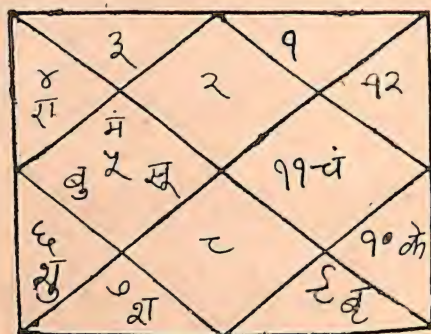 ३ १
४ २ १२
रा
मं
बु ५ सू ११ चं
६ ८ १० के
शु
७ श ९ बृ